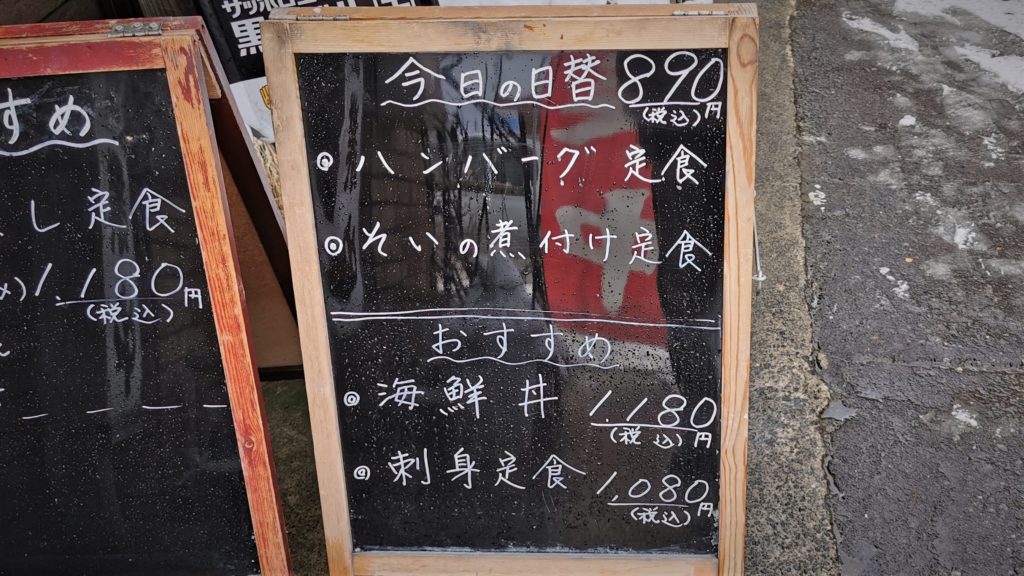 すめ
し定食
1,180円
(税込)
サッポロ
黒
今日の日替 890円
(税込)
◎ハンバーグ定食
◎そいの煮付け定食
おすすめ
◎海鮮丼 1,180円
(税込)
◎刺身定食 1,080円
(税込)